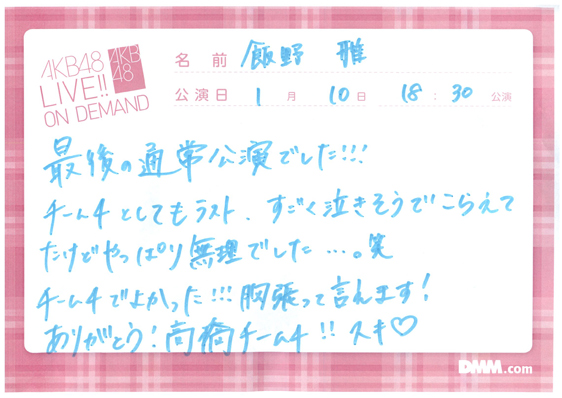 AKB48
LIVE!!
ON DEMAND
AKB
48
名前 飯野 雅
公演日 1月 10日 18:30 公演
最後の通常公演でした!!!
チーム4としてもラスト、すごく泣きそうでこらえて
たけどやっぱり無理でした…。笑
チーム4でよかった!!!胸張って言えます!
ありがとう!高橋チーム4!!スキ♡
DMM.com